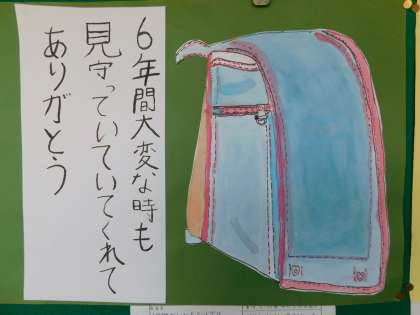 6年間大変な時も
見守っていていてくれて
ありがとう